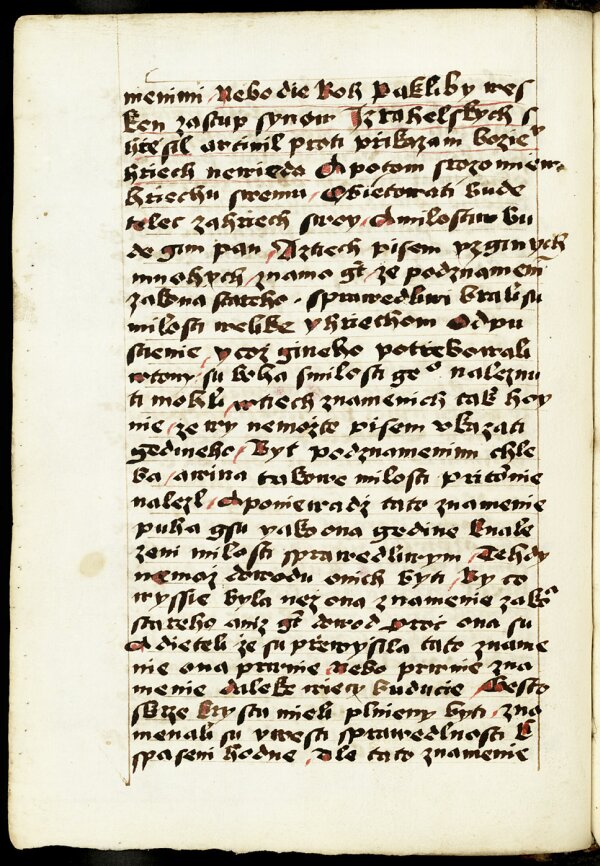 menimi Nebo die Boh Pakliby wes
ken zastup synow Izrahelskych s
hrzesil a vcinil proti prikazam bozie
hriech newieda A potom srozomiew
hriechu swemu Obietowati bude
telec zahriech swoy A milostiw bu
de gim pan Aztiech pisem yzginych
mnohych znamo gt ze podznamenim
zakona stareho sprawedliwi brali su
milosti welike yhriechom Odpu
stienie ycoz gineho potrebowali
wtom su boha smilosti geo naleznu
ti mohli wtiech znamenich tak hoy
nie zewy nemozte pisem vkazati
gedineho byt podznamenim chle
ba awina takowe milosti pritomnie
nalezl A poniewadz tato znamenie
puha gsu yako ona gedine knale
zeni milosti sprawedliwym Tehdy
nemoz dowodu onich byti by co
wyssie byla nez ona znamenie zako
stareho aniz gt dowod proc ona su
Odieteli ze su premysila tato zname
nie ona prwnie Nebo prwnie zna
menie daleke wiecy buducie Gesto
skrze krysta mieli plnieny byti zna
menali su ywesti sprawedlnosti k
spaseni hodne Ale tato znamenie